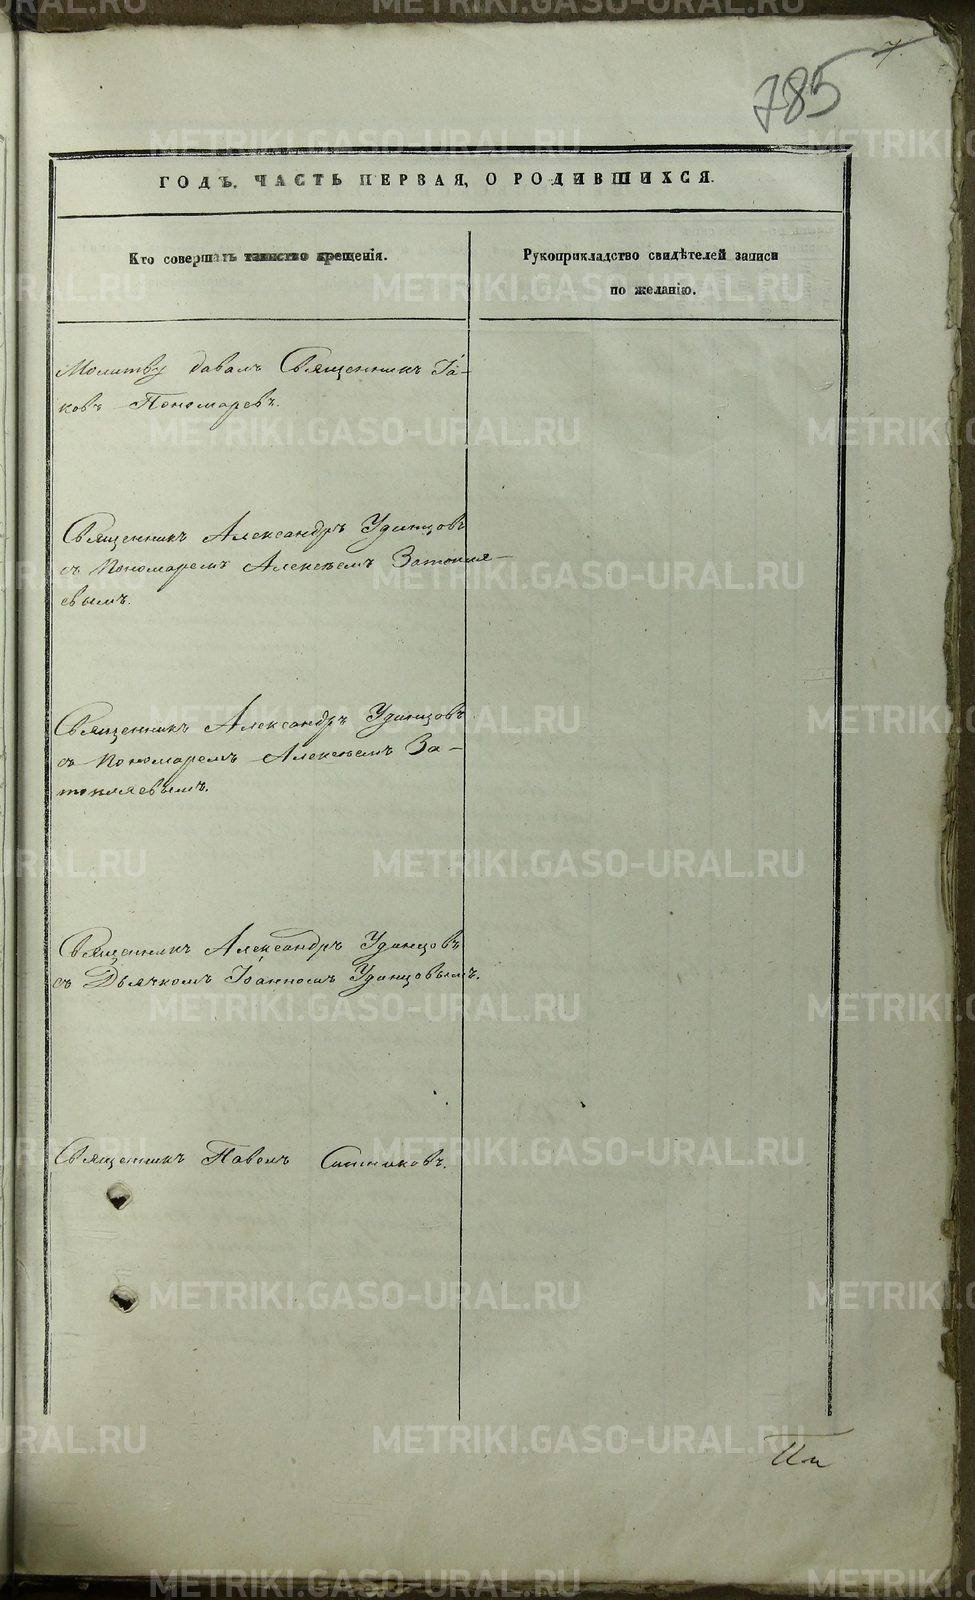 7.
785
ГОДЪ. ЧАСТЬ ПЕРВАЯ, О РОДИВШИХСЯ.
Кто совершалъ таинство крещенія.
Рукоприкладство свидѣтелей записи
по желанію.
Молитву давалъ Священникъ Іа-
ковъ Пономаревъ.
Священникъ Александръ Удинцовъ
съ Пономаремъ Алексѣемъ Затопля-
евымъ.
Священникъ Александръ Удинцовъ
съ Пономаремъ Алексѣемъ За-
топляевымъ.
Священникъ Александръ Удинцовъ
съ Дьячкомъ Іоанномъ Удинцовымъ.
Священникъ Павелъ Ситниковъ.
METRIKI.GASO-URAL.RU